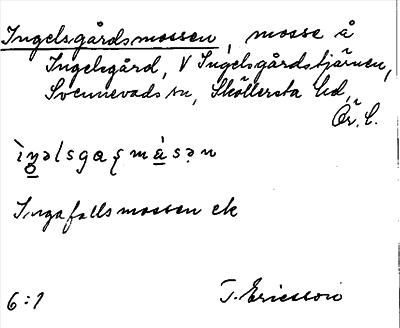 Ingelsgårdsmossen, mosse å
Ingelsgård, V Ingelsgårdstjärnen,
Svennevads sn, Sköllersta hd,
Ör. l.
Ingafallsmossen ek
6:1 T. Ericsson